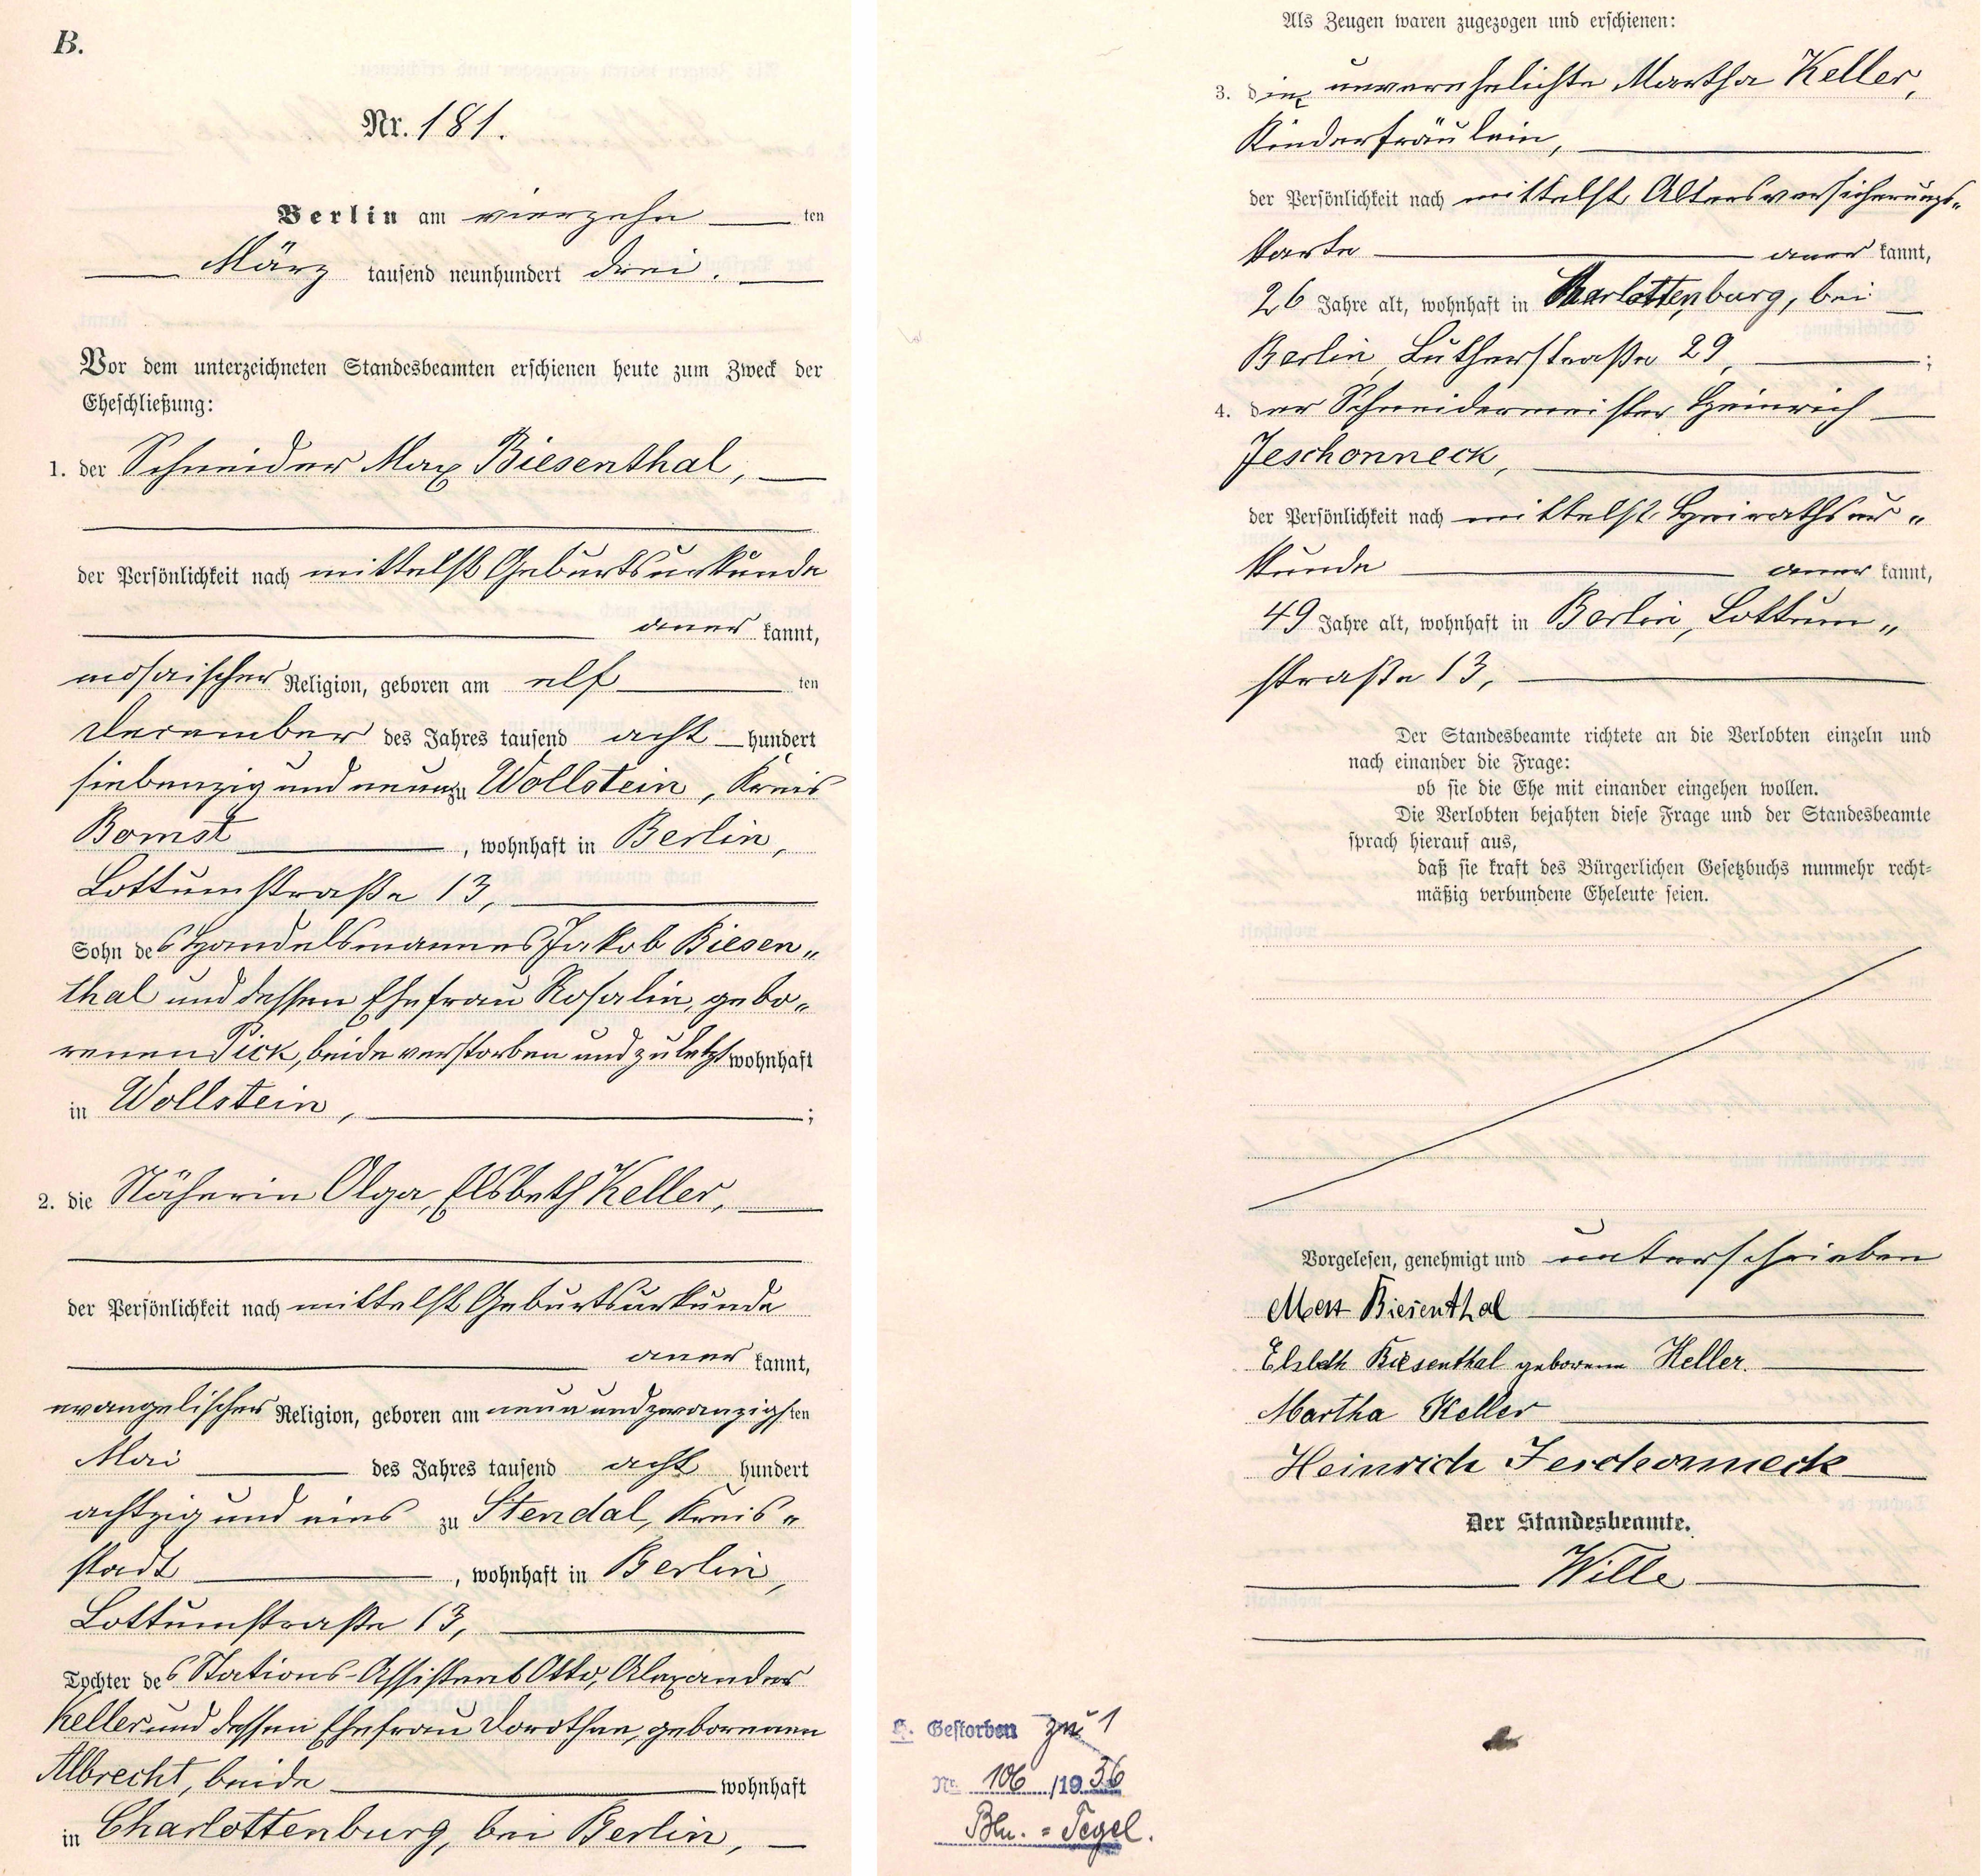 B.
Nr. 181.
Berlin am vierzehn ten
März tausend neunhundert drei.
Vor dem unterzeichneten Standesbeamten erschienen heute zum Zweck der
Eheschließung:
1. der Schneider Max Biesenthal,
der Persönlichkeit nach mittelst Geburtsurkunde
aner kannt,
mosaischer Religion, geboren am elf ten
Dezember des Jahres tausend acht hundert
siebenzig und neun zu Wollstein, Kreis
Bomst, wohnhaft in Berlin,
Lottumstraße 13,
Sohn des Handelsmannes Jakob Biesen„
thal und dessen Ehefrau Rosalie, gebo„
renen Pick, beide verstorben und zuletzt wohnhaft
in Wollstein, ;
2. die Näherin Olga, Elsbeth Keller,
der Persönlichkeit nach mittelst Geburtsurkunde
aner kannt,
evangelischer Religion, geboren am neun und zwanzigsten
Mai des Jahres tausend acht hundert
achtzig und eins zu Stendal, Kreis„
stadt, wohnhaft in Berlin,
Lottumstraße 13,
Tochter des Stations-Assistent Otto, Alexander
Keller und dessen Ehefrau Dorothee, geborenen
Albrecht, beide wohnhaft
in Charlottenburg, bei Berlin,
Als Zeugen waren zugezogen und erschienen:
3. die unverehelichte Martha Keller,
Kinderfräulein,
der Persönlichkeit nach mittelst Altersversicherungs„
karte aner kannt,
26 Jahre alt, wohnhaft in Charlottenburg, bei
Berlin, Lutherstraße 29, ;
4. der Schneidermeister Heinrich
Jeschonneck,
der Persönlichkeit nach mittelst Heirathsur„
kunde aner kannt,
49 Jahre alt, wohnhaft in Berlin, Lottum„
straße 13,
Der Standesbeamte richtete an die Verlobten einzeln und
nach einander die Frage:
ob sie die Ehe mit einander eingehen wollen.
Die Verlobten bejahten diese Frage und der Standesbeamte
sprach hierauf aus,
daß sie kraft des Bürgerlichen Gesetzbuchs nunmehr recht=
mäßig verbundene Eheleute seien.
Vorgelesen, genehmigt und unterschrieben
Max Biesenthal
Elsbeth Biesenthal geborene Keller.
Martha Keller
Heinrich Jeschonneck
Der Standesbeamte.
Wille
H. Gestorben zu 1
Nr. 106 /1936
Bln. = Tegel.